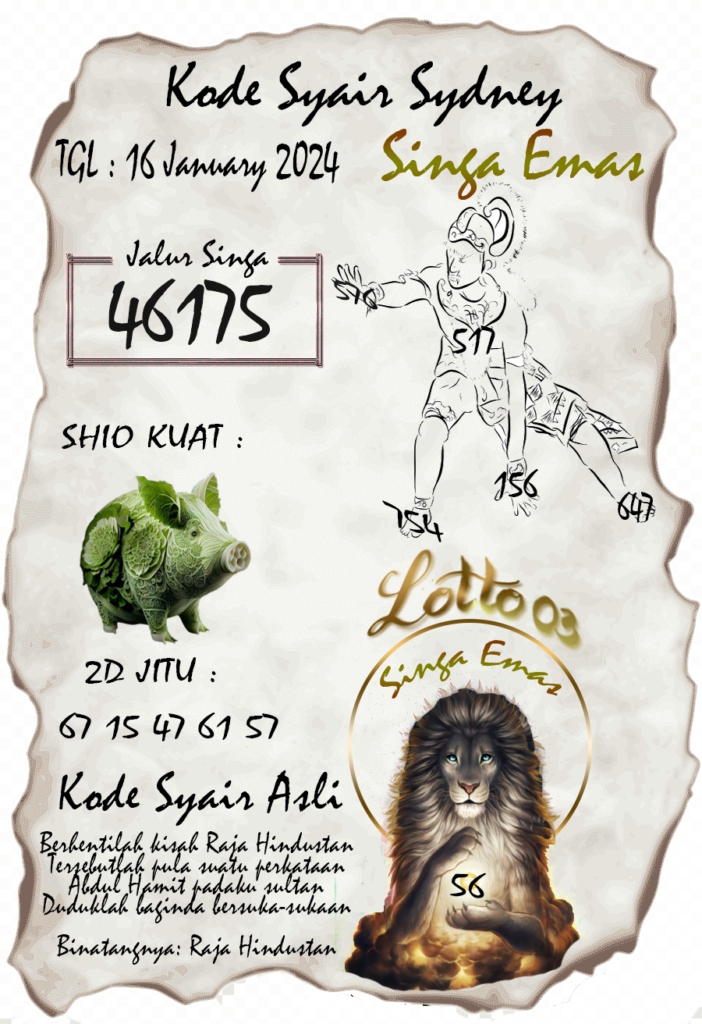 Kode Syair Sydney
TGL : 16 January 2024
Singa Emas
Jalur Singa
46175
576
517
SHIO KUAT :
156
647
754
Lotto 03
Singa Emas
2D JITU :
67 15 47 61 57
Kode Syair Asli
Berhentilah kisah Raja Hindustan
Tersebutlah pula suatu perkataan
Abdul Hamit padaku sultan
Duduklah baginda bersuka-sukaan
56
Binatangnya: Raja Hindustan